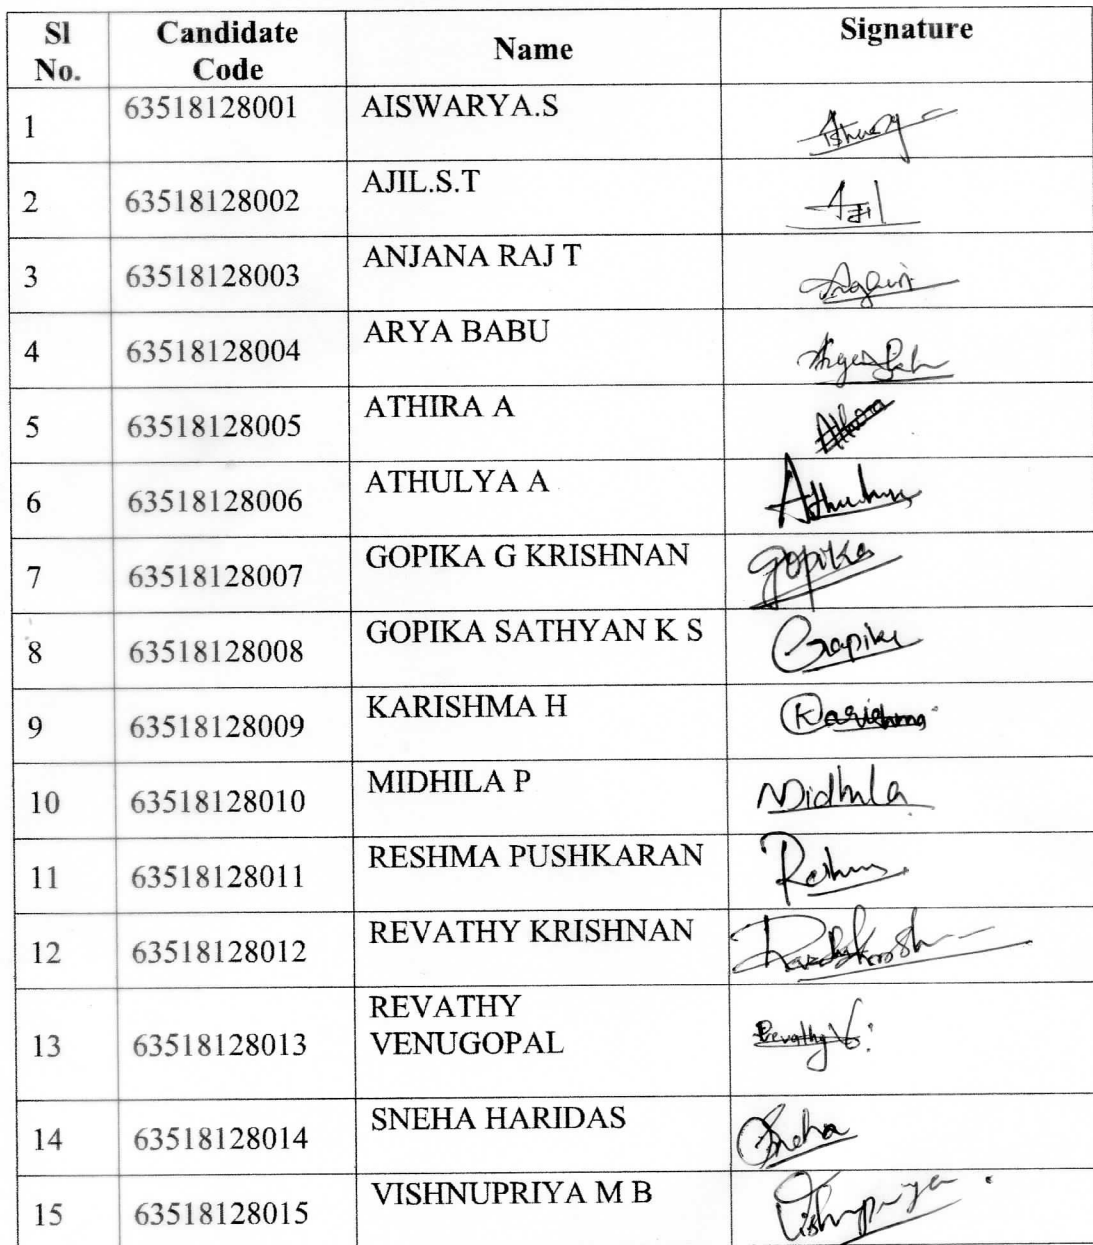 Sl No. Candidate Code Name Signature
1 63518128001 AISWARYA.S
2 63518128002 AJIL.S.T Ajil
3 63518128003 ANJANA RAJ T
4 63518128004 ARYA BABU
5 63518128005 ATHIRA A Athira
6 63518128006 ATHULYA A
7 63518128007 GOPIKA G KRISHNAN Gopika
8 63518128008 GOPIKA SATHYAN K S Gopika
9 63518128009 KARISHMA H Karishma
10 63518128010 MIDHILA P Midhila
11 63518128011 RESHMA PUSHKARAN Reshma
12 63518128012 REVATHY KRISHNAN
13 63518128013 REVATHY VENUGOPAL Revathy V.
14 63518128014 SNEHA HARIDAS Sneha
15 63518128015 VISHNUPRIYA M B Vishnupriya